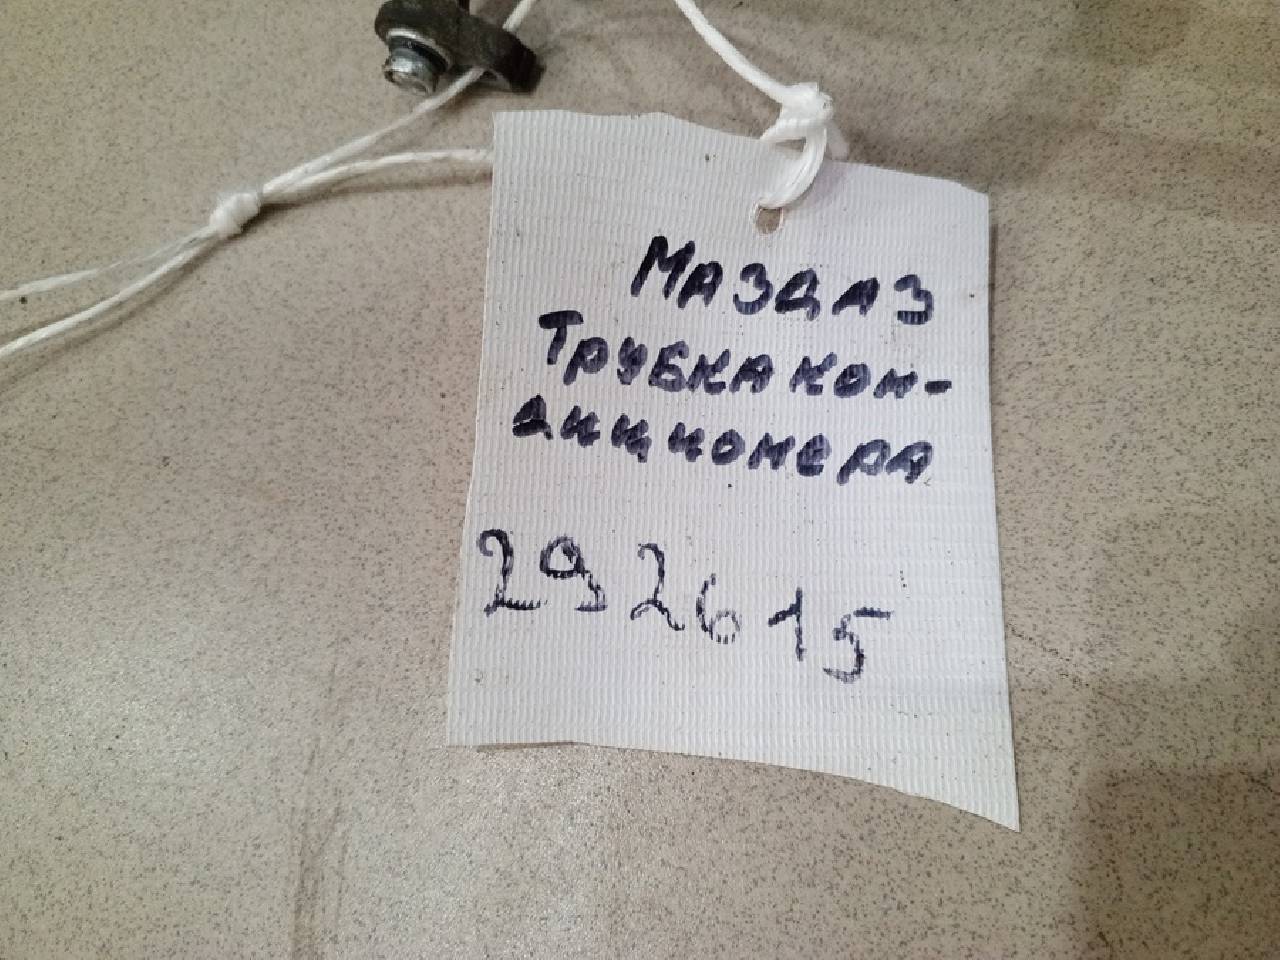 Мазда3
Трубка кон-
диционера
292615